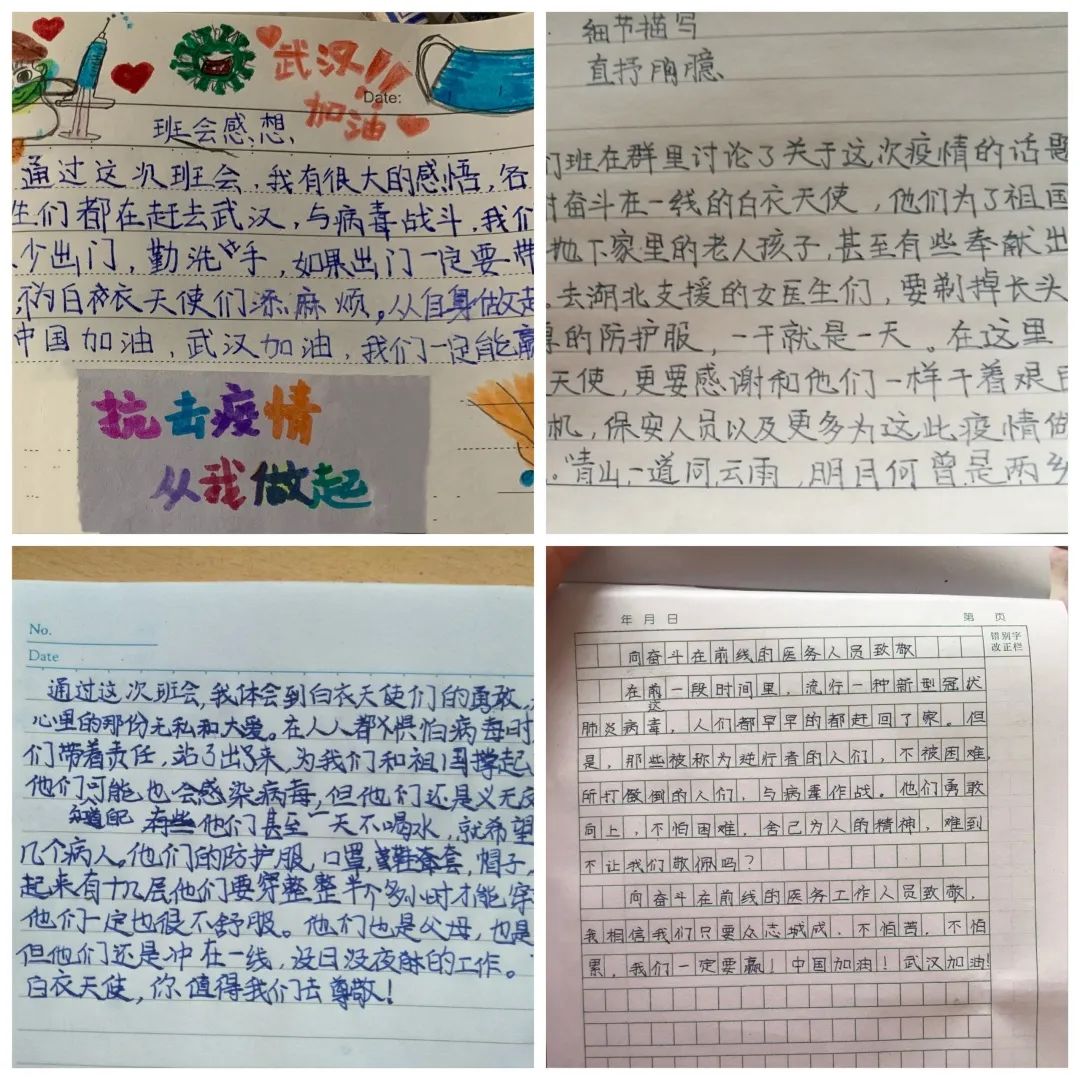 武汉!!
加油
Date:
班会感想
通过这次班会,我有很大的感悟,各
生们都在赶去武汉,与病毒战斗,我们
少出门,勤洗手,如果出门一定要带
不为白衣天使们添麻烦。从自身做起
中国加油,武汉加油,我们一定能赢
抗击疫情
从我做起
细节描写
直抒胸臆
们班在群里讨论了关于这次疫情的话题
奋斗在一线的白衣天使,他们为了祖国
抛下家里的老人孩子,甚至有些奉献出
去湖北支援的女医生们,要剃掉长头
厚的防护服,一干就是一天。在这里
天使,更要感谢和他们一样干着艰巨
机,保安人员以及更多为这此疫情做
。“青山一道同云雨,明月何曾是两乡
No.
Date
通过这次班会,我体会到白衣天使们的勇敢,
心里的那份无私和大爱。在人人都惧怕病毒时
们带着责任,站了出来,为我们和祖国撑起
他们可能也会感染病毒,但他们还是义无反
知道自己 他们甚至一天不喝水,就希望
几个病人。他们的防护服,口罩,鞋套,帽子,
起来有十几层他们要穿整整半个多小时才能穿
他们一定也很不舒服。他们也是父母,也是
但他们还是冲在一线,没日没夜的工作。
白衣天使,你值得我们去尊敬!
年 月 日 第 页
错别字
改正栏
向奋斗在前线的医务人员致敬
在前一段时间里,流行一种新型冠状
这
肺炎病毒,人们都早早的都赶回了家。但
是,那些被称为逆行者的人们,不被困难,
所打倒的人们,与病毒作战。他们勇敢
向上,不怕困难,舍己为人的精神,难到
不让我们敬佩吗?
向奋斗在前线的医务工作人员致敬,
我相信我们只要众志城成,不怕苦,不怕
累,我们一定要赢!中国加油!武汉加油!